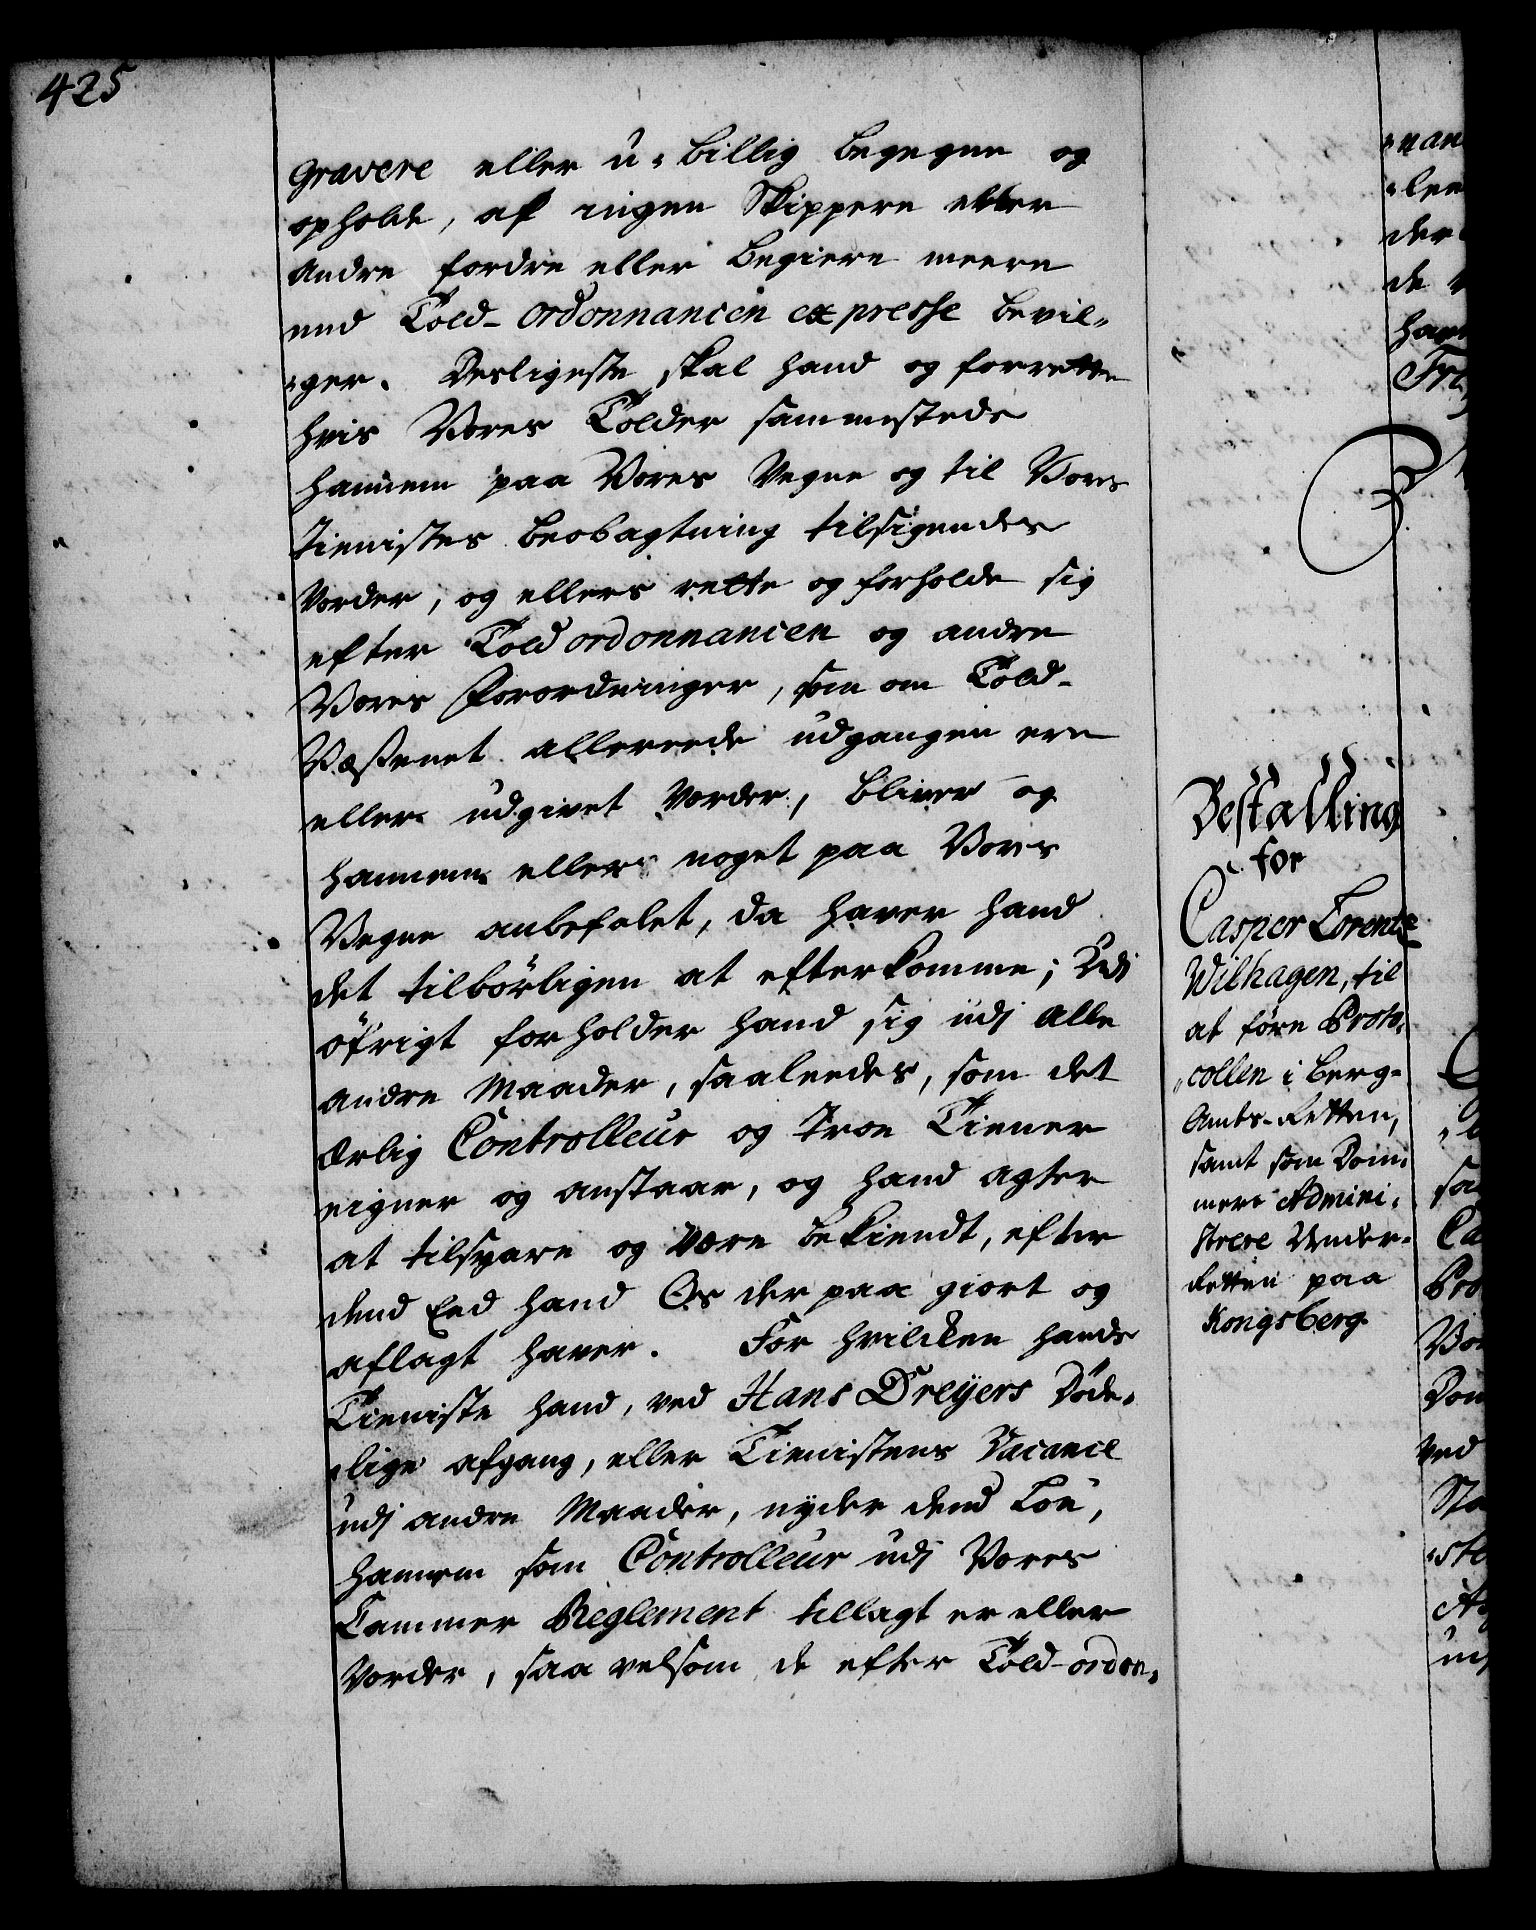 425
gravere eller u-billig begegne og
opholde, af ingen Skippere eller
andre fordre eller begiere meere
end Told-ordonnancen expresse bevil-
-ger. Desligeste skal hand og forrette
hvis Vores Tolder sammesteds
hannem paa Vores Vegne og til Vores
tienistes beobagtning tilsigendes
vorder, og ellers rette og forholde sig
efter Told ordonnancen og andre
Vores Forordninger, som om Told-
Væßenet allereede udgangen ere
eller udgivet vorder, bliver og
hannem ellers noget paa Vores
Vegne anbefalet, da haver hand
det tilbörligen at efterkomme; Udj
öfrigt forholder hand sig udj alle
andre Maader, saaleedes, som det
ærlig Controlleur og troe Tiener
eigner og anstaar, og hand agter
at tilsvare og være bekiendt, efter
dend Eed hand Os derpaa giort og
aflagt haver. For hvilcken hands
Tieniste hand, ved Hans Dreÿers Döde-
-lige afgang, eller Tienistens Vacance
udj andre Maader, nyder dend Lön,
hannem som Controlleur udj Vores
Cammer Reglement tillagt er eller
vorder, saavelsom de efter Told-ordon-
Bestalling
for
Casper Lorentz
Wilhagen, til
at före Proto-
-collen i Berg-
Amts-Retten,
samt som Dom-
mere Admini-
strere Under-
Retten paa
Kongsberg.